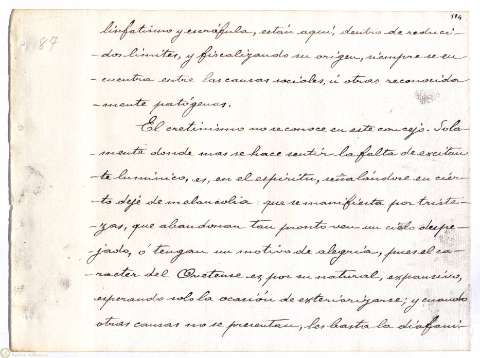 184
187
linfatismo y escrófula, están aquí, dentro de reduci-
-dos límites, y fiscalizando su origen, siempre se en-
-cuentra entre las causas sociales, ú otras reconocida
-mente patógenas.
El cretinismo no se conoce en este concejo. Sola-
-mente donde mas se hace sentir la falta de excitan-
-te lumínico, es, en el espíritu, señalándose en cier-
-to dejé de melancolía que se manifiesta por triste-
-zas, que abandonan tan pronto ven un cielo despe-
-jado, ó tengan un motivo de alegría, pues el ca-
-racter del Ovetense es, por su natural, expansivo,
esperando solo la ocasión de exteriorizarse; y cuando
otras causas no se presentan, les basta la diáfani-